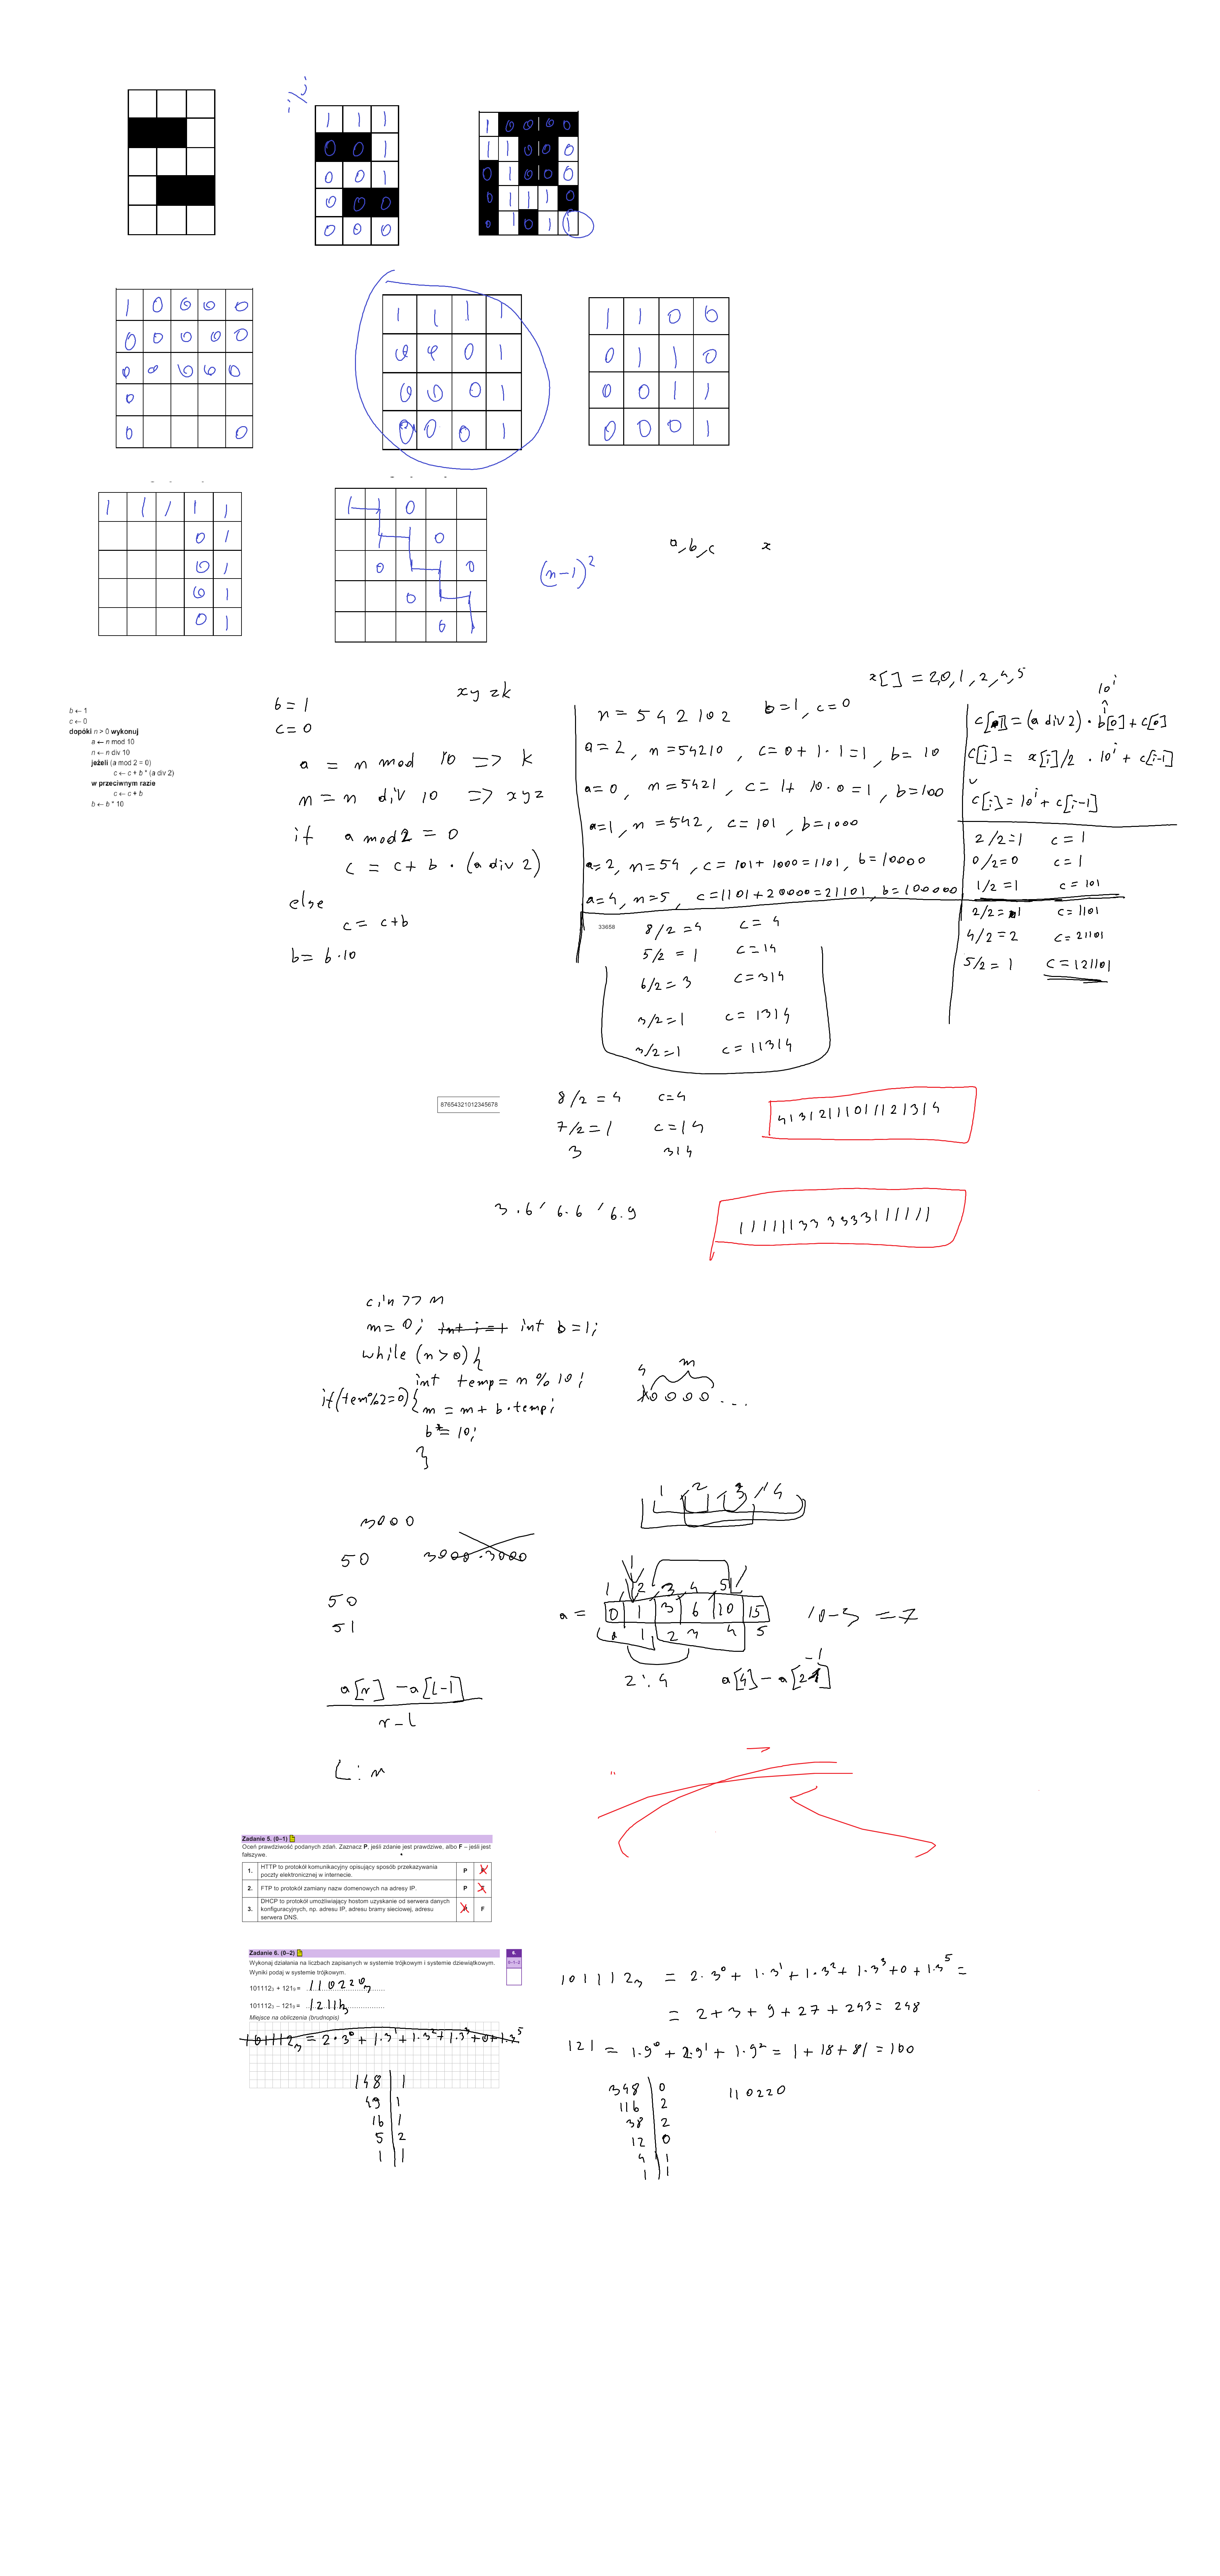 i \ j
1 1 1
0 0 1
0 0 1
0 0 0
0 0 0
1 0 0 0 0
1 1 0 0 0
0 1 0 0 0
0 1 1 1 0
0 1 0 1 1
1 0 0 0 0
0 0 0 0 0
0 0 0 0 0
0
0 0
1 1 1 1
0 0 0 1
0 0 0 1
0 0 0 1
1 1 0 0
0 1 1 0
0 0 1 1
0 0 0 1
1 1 1 1 1
0 1
0 1
0 1
0 1
1 1 0
1 1 0
0 1 1 0
0 1 1
0 1
(n-1)²
a, b, c x
b ← 1
c ← 0
dopóki n > 0 wykonuj
a ← n mod 10
n ← n div 10
jeżeli (a mod 2 = 0)
c ← c + b * (a div 2)
w przeciwnym razie
c ← c + b
b ← b * 10
b = 1
c = 0
xyzk
a = n mod 10 => k
n = n div 10 => xyz
if a mod 2 = 0
c = c + b · (a div 2)
else
c = c+b
b = b·10
n = 542102 b=1, c=0
a=2, n=54210, c=0+1·1=1, b=10
a=0, n=5421, c=1+10·0=1, b=100
a=1, n=542, c=101, b=1000
a=2, n=54, c=101+1000=1101, b=10000
a=4, n=5, c=1101+20000=21101, b=100000
x[] = 2,0,1,2,4,5
10^i
c[0]=(a div 2)·b[0]+c[0]
c[i] = x[i]/2 · 10^i + c[i-1]
c[i]=10^i+c[i-1]
2/2=1 c=1
0/2=0 c=1
1/2=1 c=101
2/2=1 c=1101
4/2=2 c=21101
5/2=1 c=121101
33658
8/2=4 c=4
5/2=1 c=14
6/2=3 c=314
3/2=1 c=1314
3/2=1 c=11314
87654321012345678
8/2=4 c=4
7/2=1 c=14
3 314
41312111011121314
3·6, 6·6, 6·9
111111333333111111
cin >> n
m=0; int i=1 int b=1;
while (n>0){
int temp = n % 10;
if(tem%2=0){
m = m + b·temp;
b*=10;
}
m
0000...
1 2 3 4
3000
50 3000·3000
50
51
1 2 3 4 5
a = 0 1 3 6 10 15
0 1 2 3 4 5
10-3 = 7
2 : 4 a[4] - a[2-1]
a[r] - a[l-1]
r-l
L : r
Zadanie 5. (0–1)
Oceń prawdziwość podanych zdań. Zaznacz P, jeśli zdanie jest prawdziwe, albo F – jeśli jest
fałszywe.
1. HTTP to protokół komunikacyjny opisujący sposób przekazywania
poczty elektronicznej w internecie. P F
2. FTP to protokół zamiany nazw domenowych na adresy IP. P F
3. DHCP to protokół umożliwiający hostom uzyskanie od serwera danych
konfiguracyjnych, np. adresu IP, adresu bramy sieciowej, adresu
serwera DNS. P F
Zadanie 6. (0–2)
6.
0–1–2
Wykonaj działania na liczbach zapisanych w systemie trójkowym i systemie dziewiątkowym.
Wyniki podaj w systemie trójkowym.
101112₃ + 121₉ = 110220₃
101112₃ – 121₉ = 12111₃
Miejsce na obliczenia (brudnopis)
101112₃ = 2·3⁰+1·3¹+1·3²+1·3³+0+1·3⁵
148 1
49 1
16 1
5 2
1 1
101112₃ = 2·3⁰+1·3¹+1·3²+1·3³+0+1·3⁵ =
= 2+3+9+27+243=248
121 = 1·9⁰+2·9¹+1·9²=1+18+81=100
348 0
116 2
38 2
12 0
4 1
1 1
110220